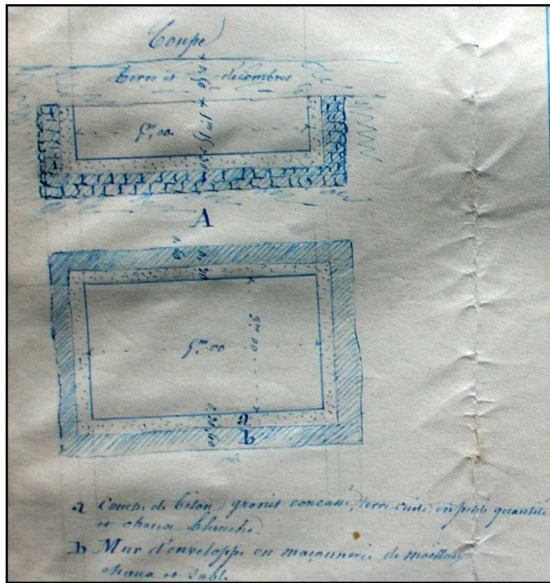 Coupe
terres et décombres
5,m00
A
5,m00
a
b
a Couche de béton, granit concassé, terre cuite en petite quantité
et chaux blanche.
b Mur d'enveloppe en maçonnerie de moellons
chaux et sable